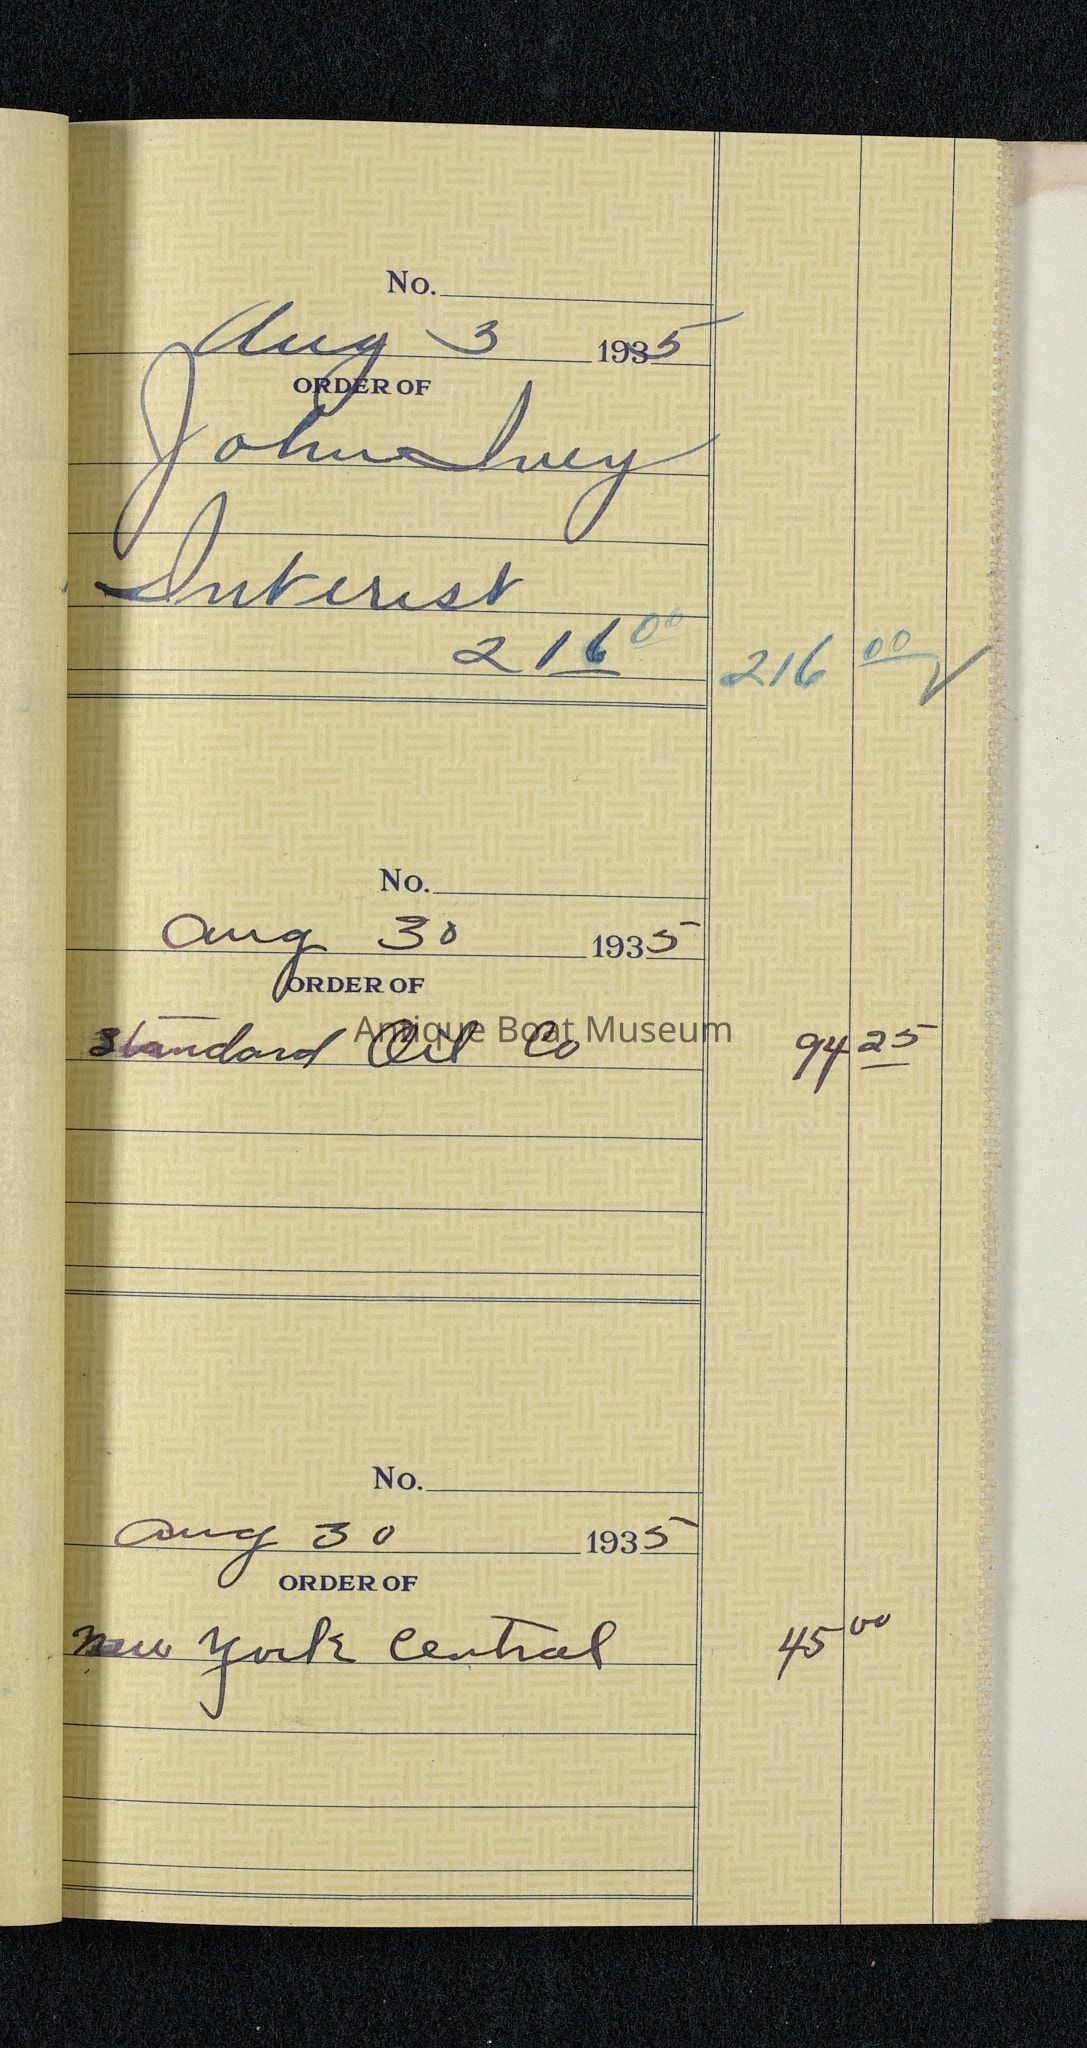 No.
Aug 3 1935
ORDER OF
John Ivey
Interest
216 00 216 00 ✓
No.
Aug 30 1935
ORDER OF
Standard Oil Co 94 25
Antique Boat Museum
No.
Aug 30 1935
ORDER OF
New York Central 45 00